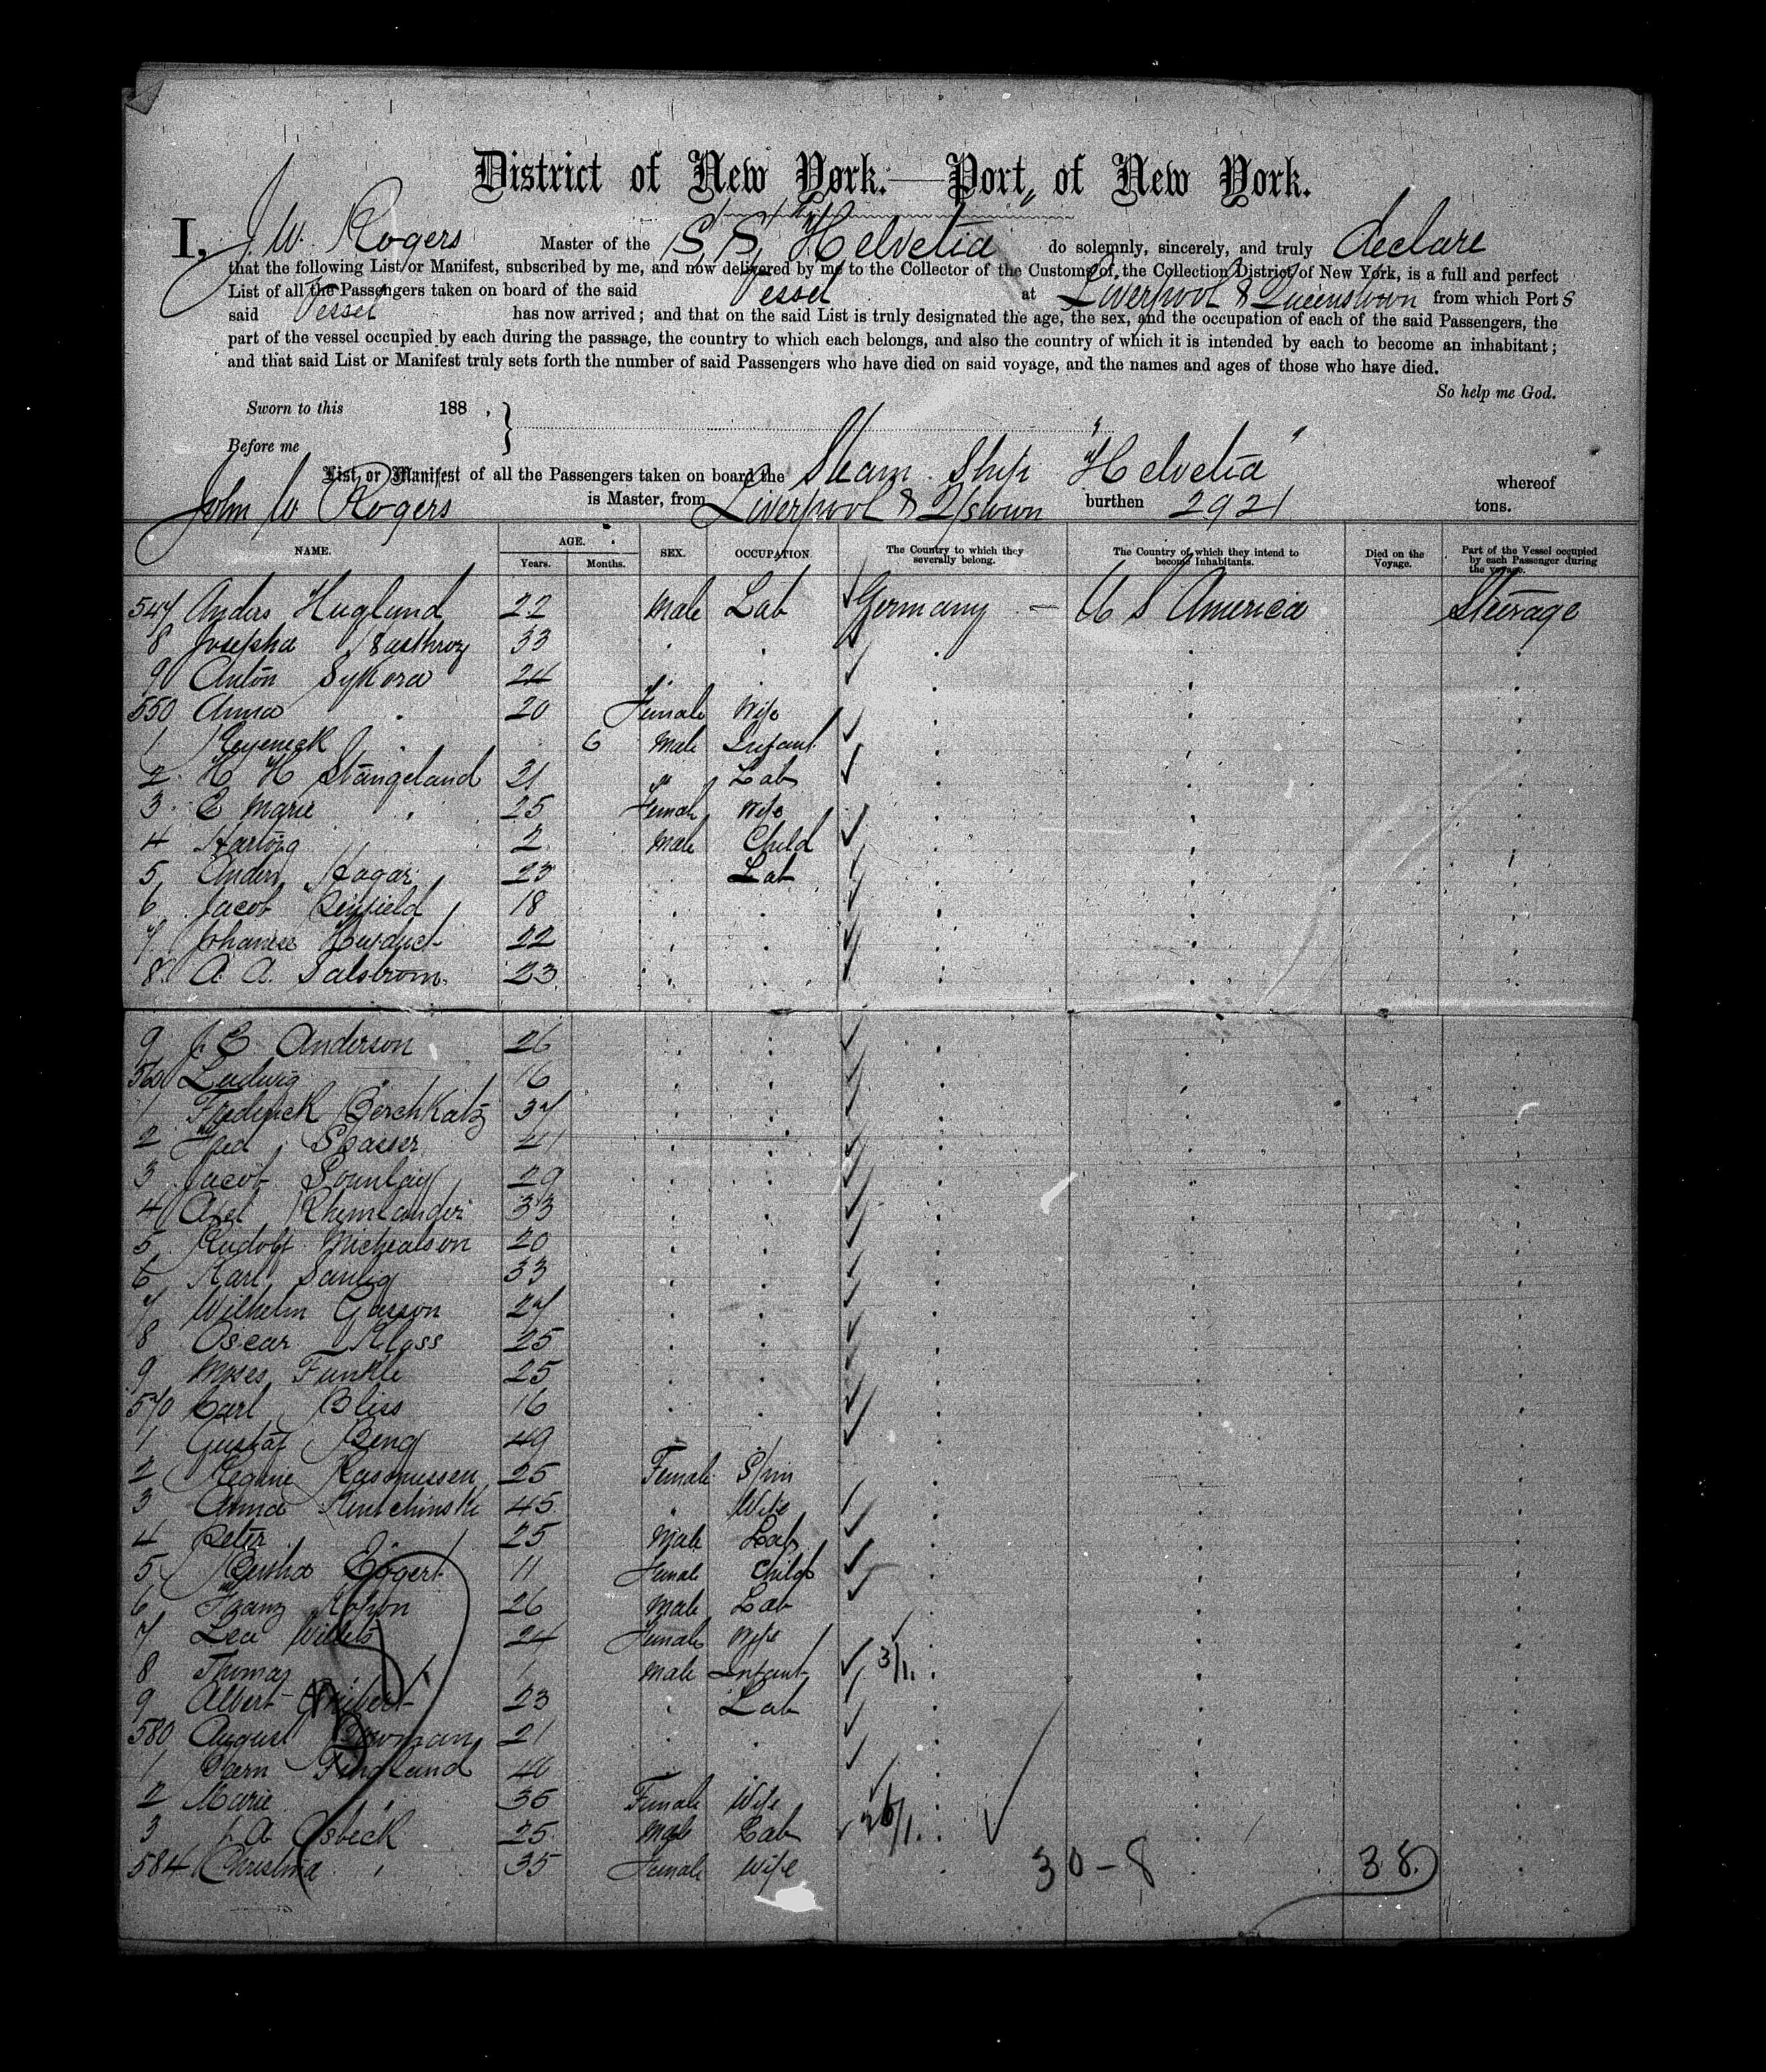 District of New York.—Port of New York.
I, J. W. Rogers Master of the S.S. "Helvetia" do solemnly, sincerely, and truly declare
that the following List or Manifest, subscribed by me, and now delivered by me to the Collector of the Customs of the Collection District of New York, is a full and perfect
List of all the Passengers taken on board of the said Vessel at Liverpool & Queenstown from which Port s
said Vessel has now arrived; and that on the said List is truly designated the age, the sex, and the occupation of each of the said Passengers, the
part of the vessel occupied by each during the passage, the country to which each belongs, and also the country of which it is intended by each to become an inhabitant;
and that said List or Manifest truly sets forth the number of said Passengers who have died on said voyage, and the names and ages of those who have died.
So help me God.
Sworn to this 188 ,
Before me
List or Manifest of all the Passengers taken on board the Steam Ship "Helvetia" whereof
John W Rogers is Master, from Liverpool & Q/stown burthen 2921 tons.
NAME. AGE. Years. Months. SEX. OCCUPATION. The Country to which they severally belong. The Country of which they intend to become Inhabitants. Died on the Voyage. Part of the Vessel occupied by each Passenger during the voyage.
547 Anders Huglund 22 Male Lab Germany — U S America Steerage
8 Josepha 33
9 Anton Sykora 24
550 Anna " 20 Female Wife
1 " 6 Male Infant
2 H H Stangeland 21 " Lab
3 E Marie " 25 Female Wife
4 Hartvig 2 Male Child
5 Anders Hagar 23 Lab
6 Jacob 18
7 Johannes 22
8 A. A. Salstrom 23
9 J. E. Anderson 26
560 Ludwig " 16
1 Frederick Berchkatz 37
2 Fred 41
3 Jacob 29
4 Axel Rhemlander 33
5 Rudolf Michealson 20
6 Karl 33
7 Wilhelm Gasson 27
8 Oscar Kloss 25
9 Moses Funkle 25
570 Carl Bliss 16
1 Gustaf Beng 49
2 Regine Rasmussen 25 Female Spin
3 Anna 45 " Wife
4 Peter " 25 Male Lab
5 Bertha Eggert 11 Female Child
6 Franz 26 Male Lab
7 Lea Willets 24 Female Wife
8 Thomas " 1 Male Infant 3/11.
9 Albert 23 " Lab
580 August Bowman 21
1 Fingland 40
2 Marie " 35 Female Wife
3 J. A. Osbeck 25 Male Lab 26/1.
584 Christina " 35 Female Wife 30-8 38